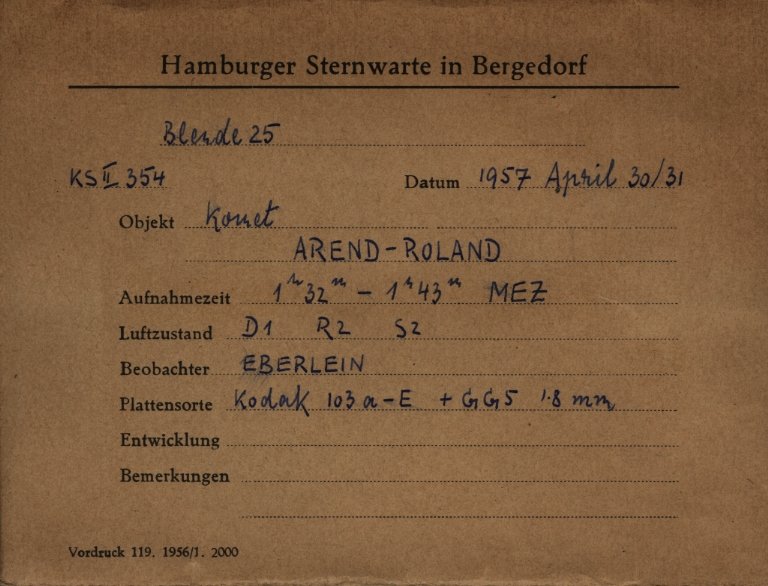 Hamburger Sternwarte in Bergedorf
Blende 25
KS II 354 Datum 1957 April 30/31
Objekt Komet
AREND-ROLAND
Aufnahmezeit 1h32m – 1h43m MEZ
Luftzustand D1 R2 S2
Beobachter EBERLEIN
Plattensorte Kodak 103a-E + GG5 1.8 mm
Entwicklung
Bemerkungen
Vordruck 119. 1956/1. 2000